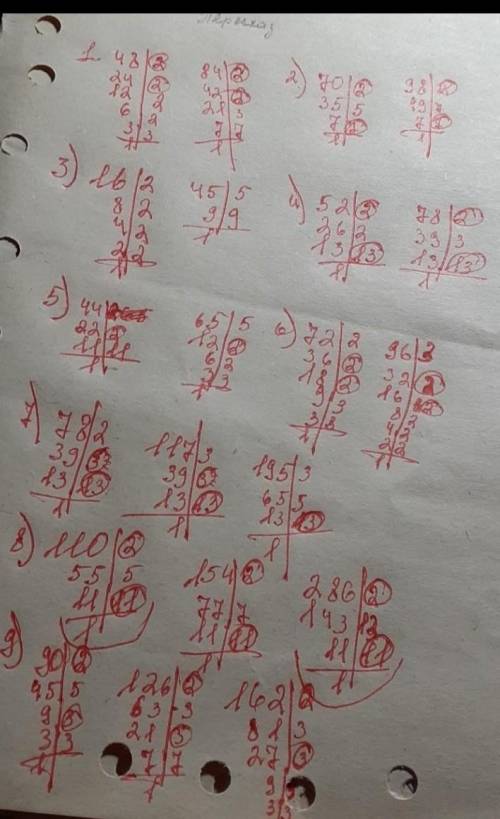 1. 48 | 2   84 | 2
24 | 2   42 | 2
12 | 2   21 | 3
6 | 2   7 | 7
3 | 3   1
1
2) 70 | 2   98 | 2
35 | 5   49 | 7
7 | 7   7 | 7
1   1
3) 16 | 2   45 | 5
8 | 2   9 | 9
4 | 2   1
2 | 2
1
4) 52 | 2   78 | 2
26 | 2   39 | 3
13 | 13   13 | 13
1   1
5) 44   65 | 5
22 | 2   12 | 2
11 | 11   6 | 2
1   3 | 3
1
6) 72 | 2   96 | 3
36 | 2   32 | 2
18 | 2   16 | 2
9 | 3   8 | 2
3 | 3   4 | 2
1   2 | 2
1
7) 78 | 2   117 | 3   195 | 3
39 | 3   39 | 3   65 | 5
13 | 13   13 | 13   13 | 13
1   1   1
8) 110 | 2   154 | 2   286 | 2
55 | 5   77 | 7   143 | 13
11 | 11   11 | 11   11 | 11
1   1   1
9) 90 | 2   126 | 2   162 | 2
45 | 5   63 | 3   81 | 3
9 | 3   21 | 3   27 | 3
3 | 3   7 | 7   9 | 3
1   1   3 | 3